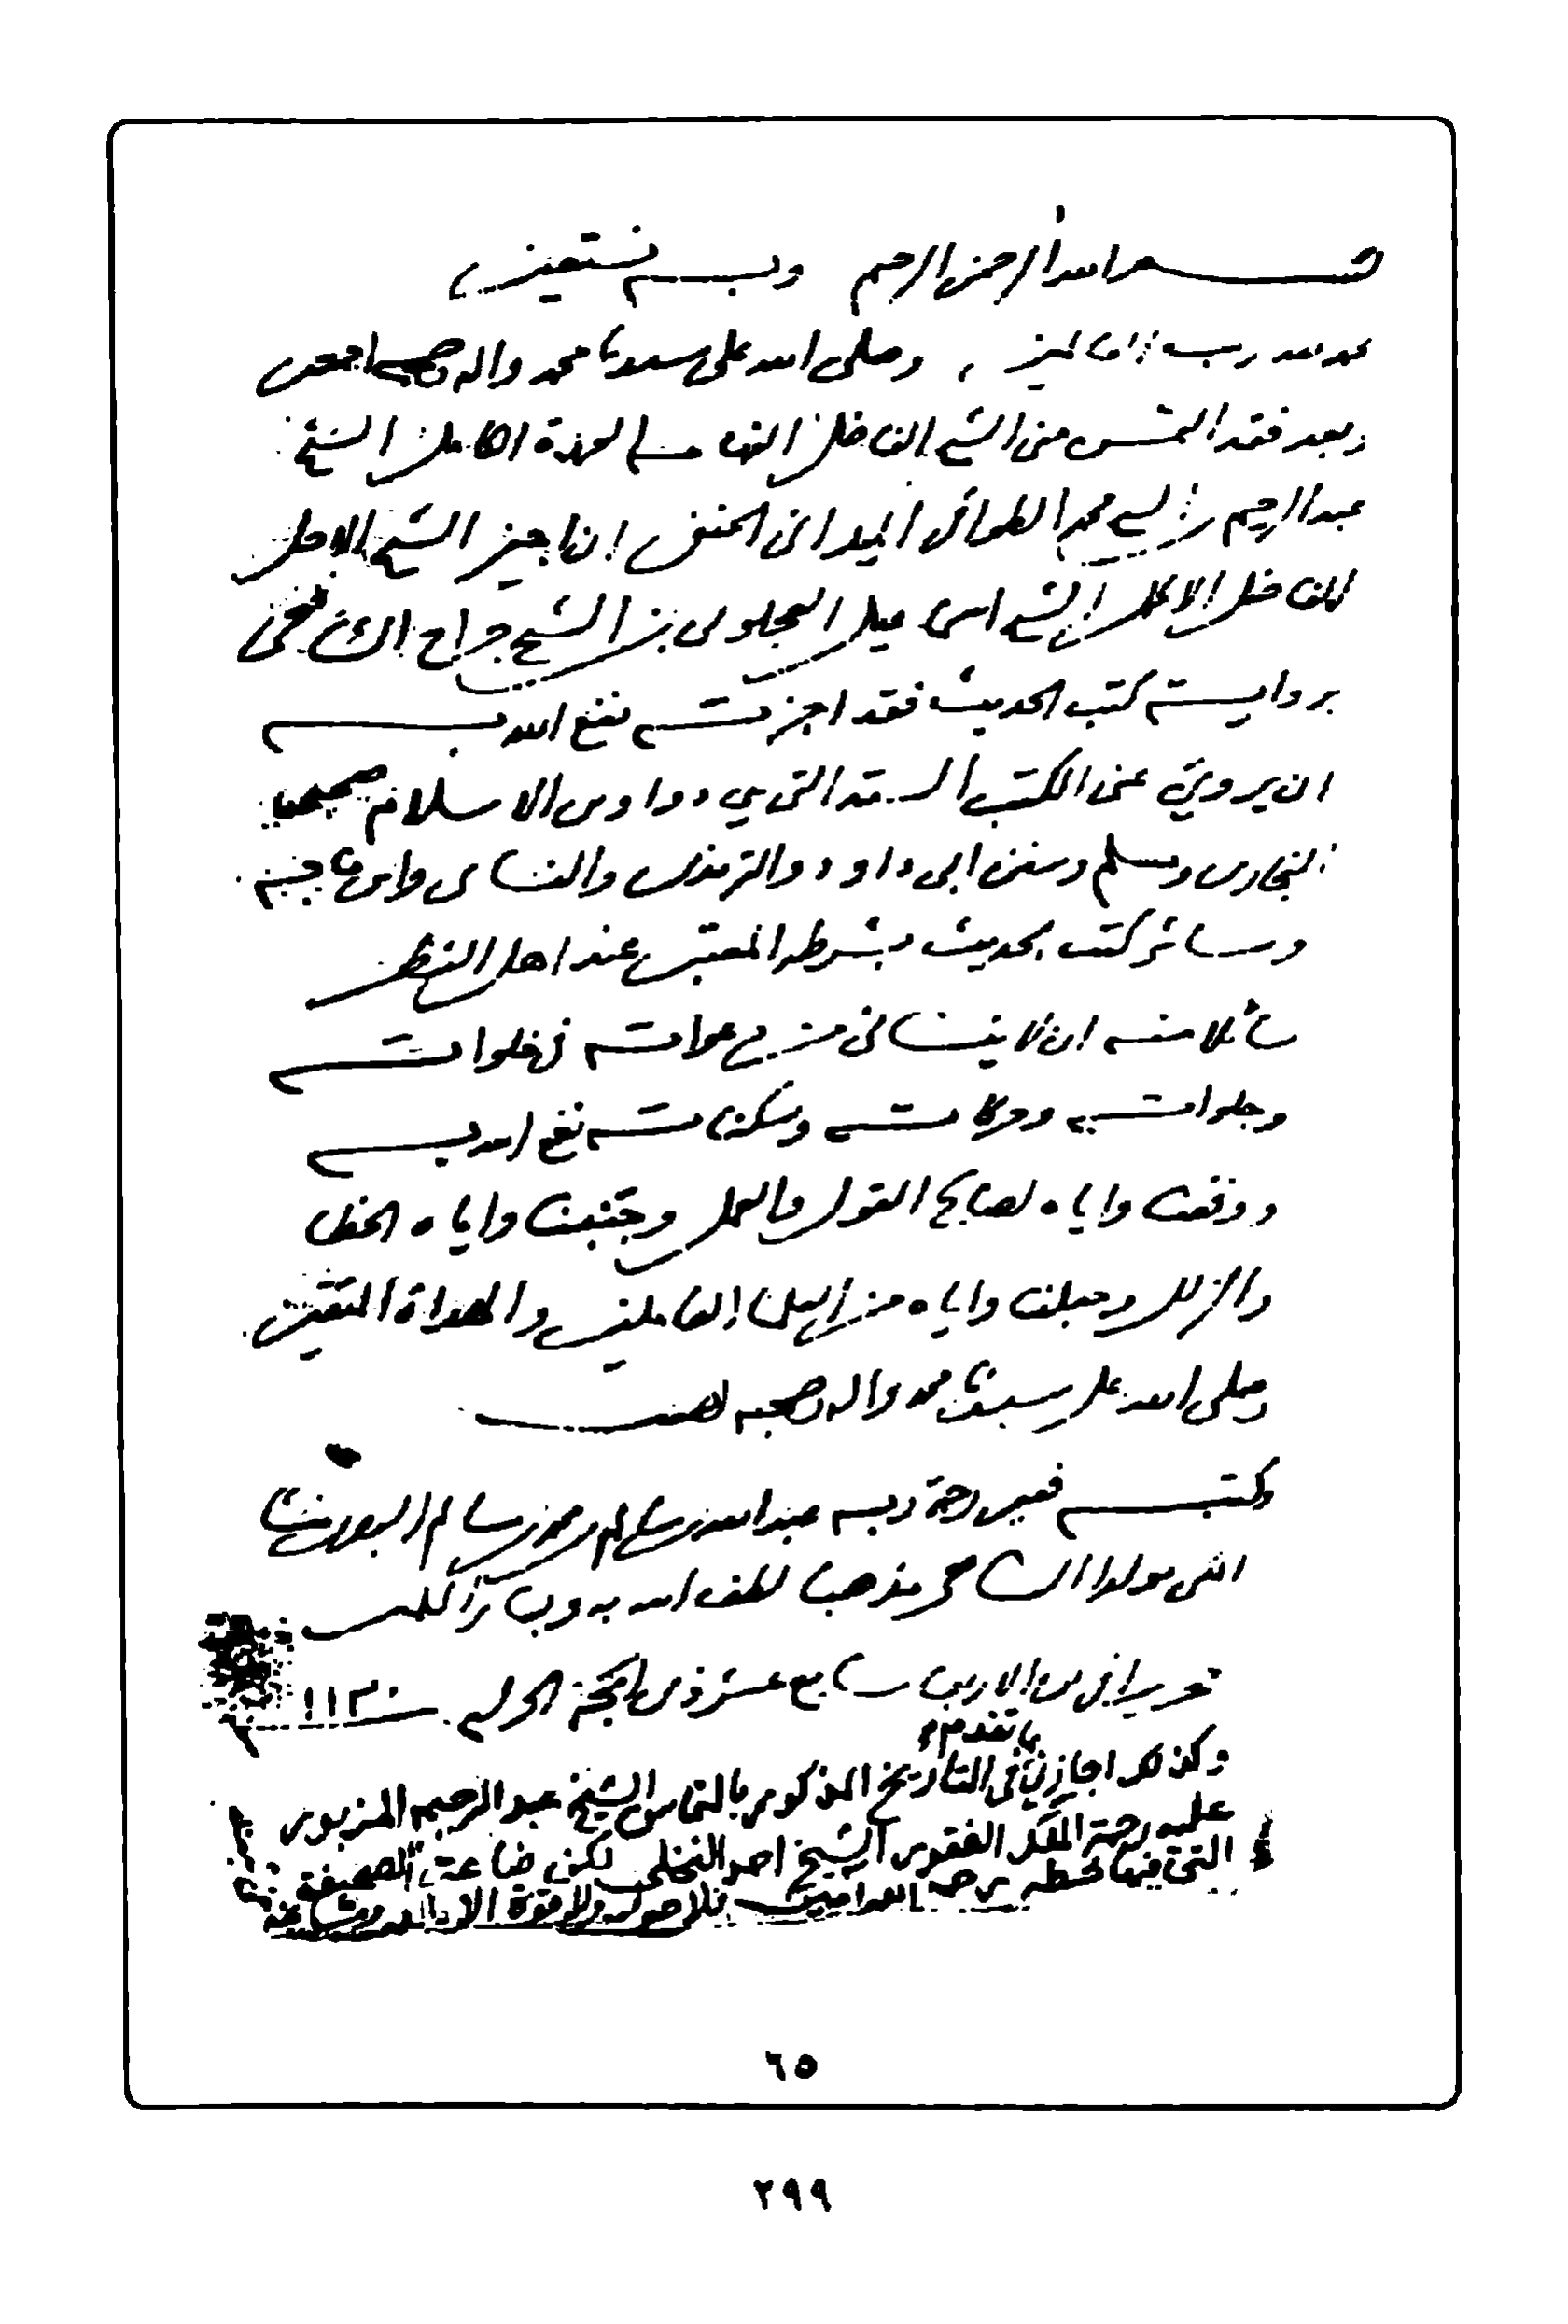 بسم الله الرحمن الرحيم وبه نستعين
الحمد لله رب العالمين، وصلى الله على سيدنا محمد واله وصحبه اجمعين
وبعد فقد التمس مني الشيخ الفاضل العمدة الكامل الشيخ
عبد الرحيم بن الشيخ محمد الطواقي الميداني الحنفي ان اجيز الشيخ
الفاضل الاكمل الشيخ اسماعيل العجلوني بن الشيخ جراح الشافعي
برواية كتب الحديث فقد اجزته نفع الله به
ان يروي عني الكتب الستة التي هي دواوين الاسلام صحيحي
البخاري ومسلم وسنن ابي داود والترمذي والنسائي وابن ماجه
وسائر كتب الحديث بشرطه المعتبر عند اهل النظر
سائلا منه ان لا ينساني من دعواته في خلواته
وجلواته وحركاته وسكناته نفع الله به
ووفقنا واياه لصالح القول والعمل وجنبنا واياه الخطل
والزلل وجعلنا واياه من العاملين والهداة المتقين
وصلى الله على سيدنا محمد واله وصحبه
وكتبه فقير رحمة ربه عبد الله بن سالم بن محمد بن سالم البصري منشأ
المكي مولدا الشافعي مذهبا لطف الله به
تحريرا في يوم الاربعاء سابع عشر ذي الحجة الحرام سنة ١١٣٠
بما تقدم
وكذلك اجازني في التاريخ المذكور بالتماس الشيخ عبد الرحيم المزبور
عليه رحمة الملك الغفور الشيخ احمد النخلي لكن ضاعت الصحيفة
التي فيها خطه يرحمه الله امين فلا حول ولا قوة الا بالله
٦٥
٢٩٩